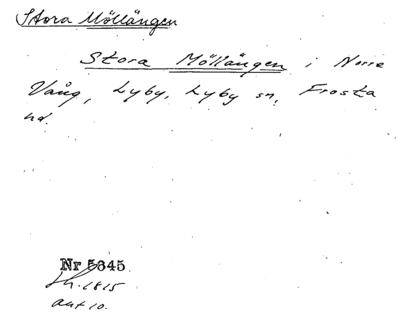 Stora Möllängen
Stora Möllängen i Norre
Vång, Lyby, Lyby sn, Frosta
hd.
Nr 5345
Sk. 1815
akt 10.